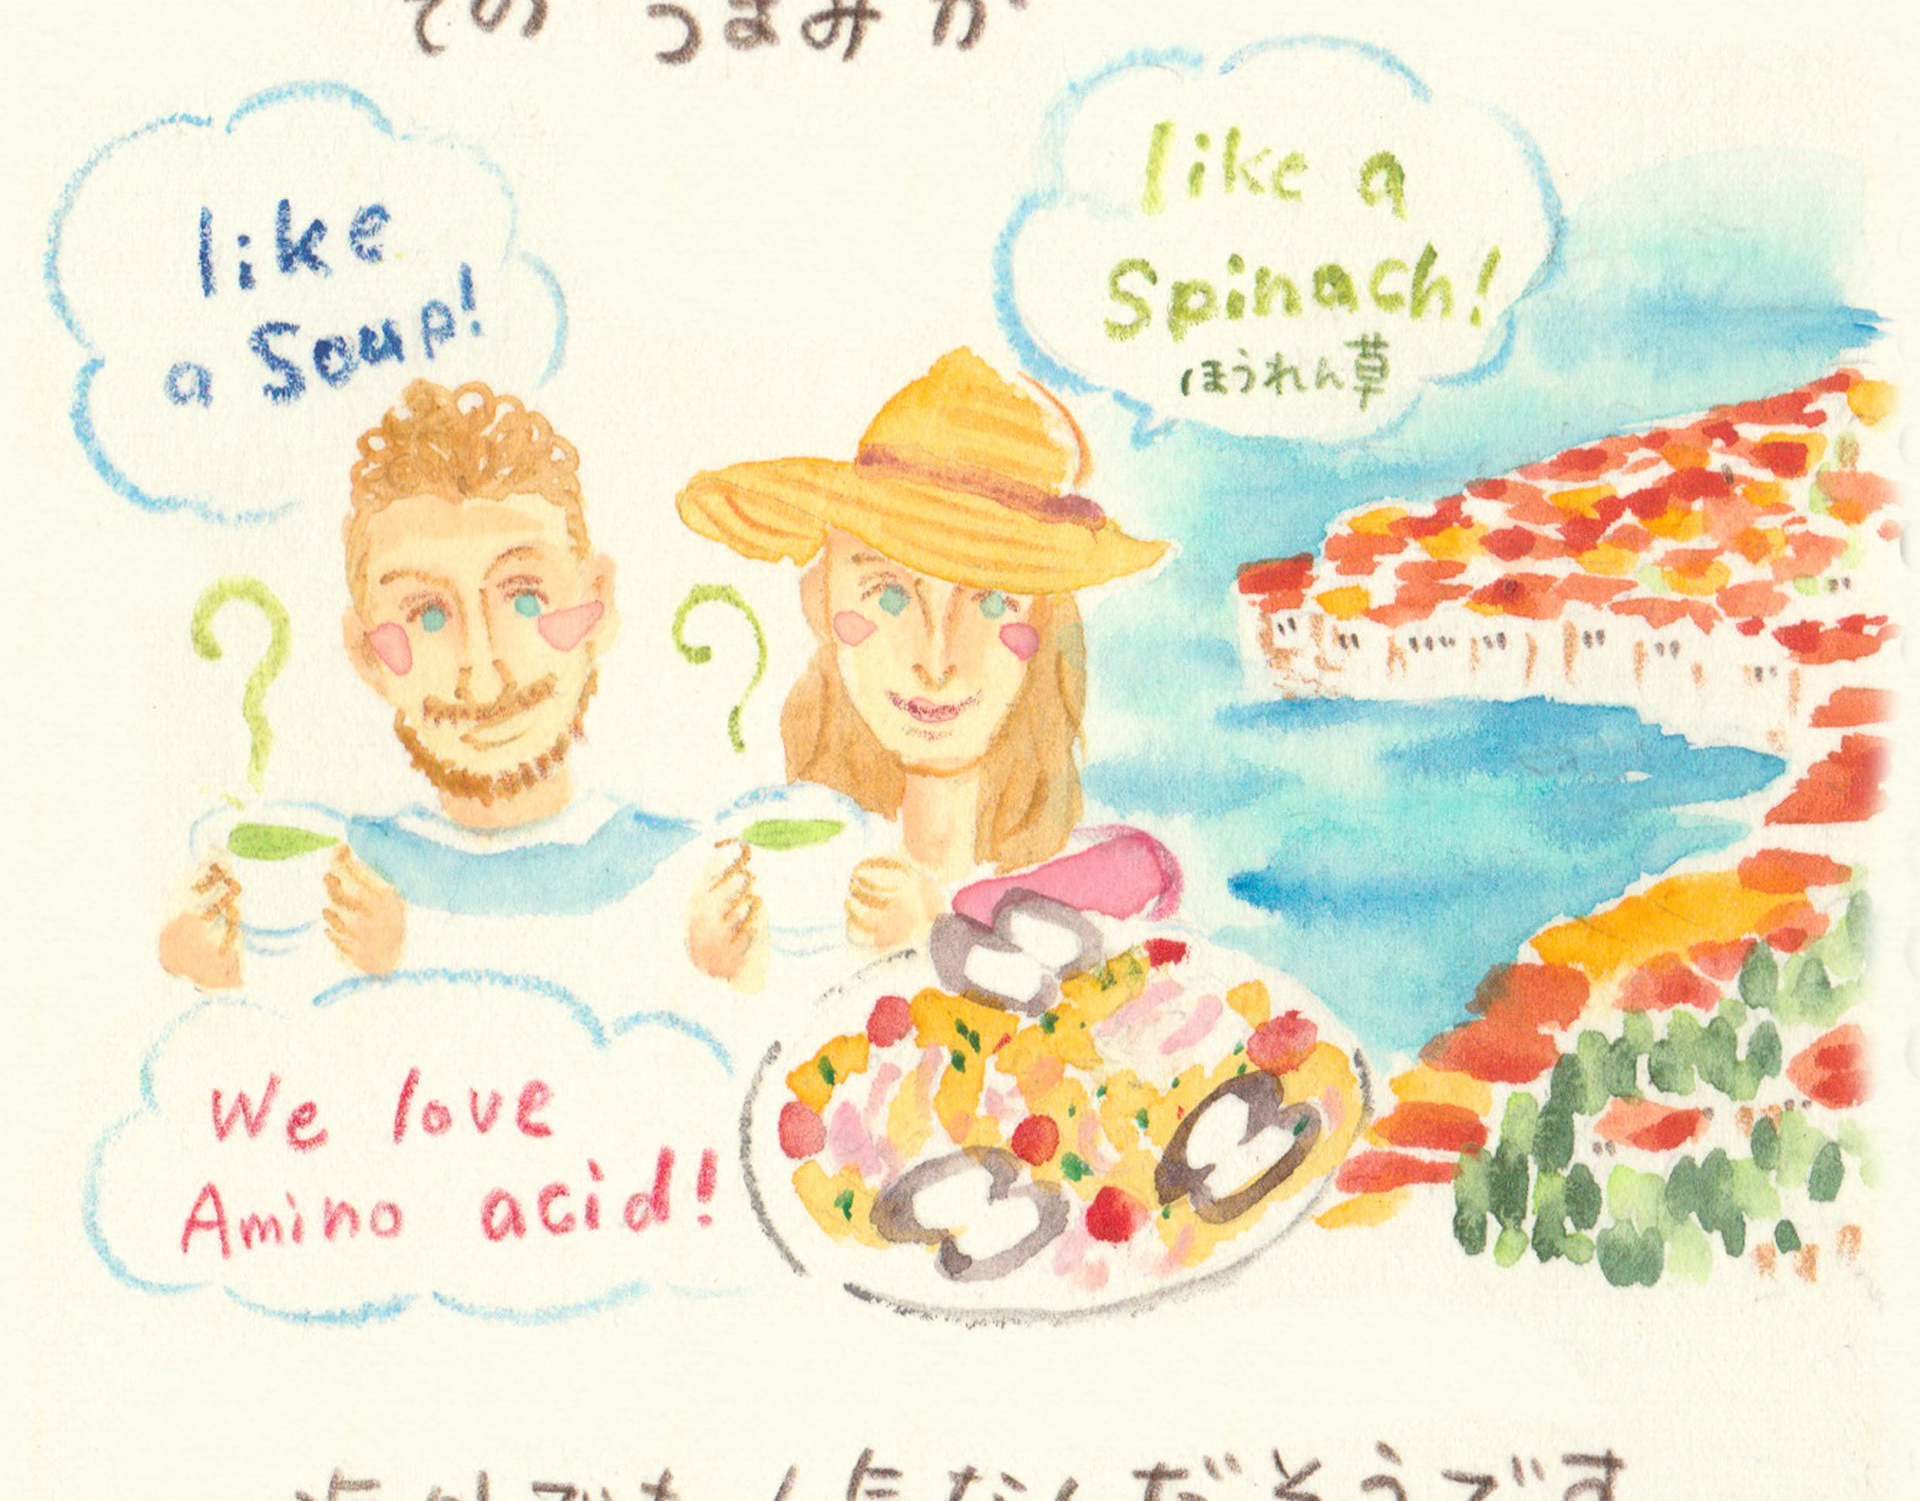 その つまみ が
like
a Soup!
like a
Spinach!
ほうれん草
We love
Amino acid!
海外でも人気なんだそうです